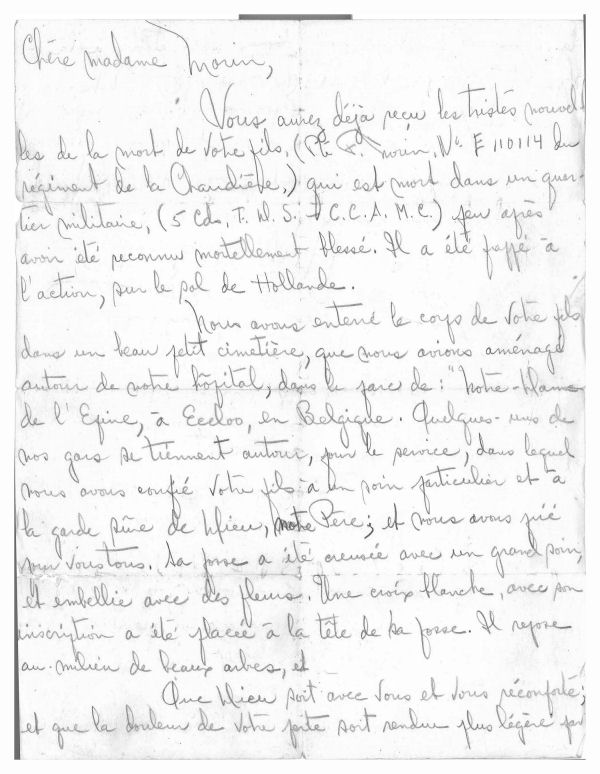 Chère madame Morin,
Vous aurez déjà reçu les tristes nouvel-
les de la mort de votre fils, (Pte F. Morin, No. E 110114 du
régiment de la Chaudière,) qui est mort dans un quar-
tier militaire, (5 Cdn. F. D. S. C.C.A.M.C.) peu après
avoir été reconnu mortellement blessé. Il a été frappé à
l'action, sur le sol de Hollande.
Nous avons enterré le corps de votre fils
dans un beau petit cimetière, que nous avions aménagé
autour de notre hôpital, dans le parc de: "Notre-Dame
de l'Epine, à Eecloo, en Belgique. Quelques-uns de
nos gars se tiennent autour, pour le service, dans lequel
nous avons confié votre fils à un soin particulier et à
la garde sûre de Dieu, notre Père; et nous avons prié
pour vous tous. Sa fosse a été creusée avec un grand soin,
et embellie avec des fleurs. Une croix blanche, avec son
inscription a été placée à la tête de sa fosse. Il repose
au milieu de beaux arbres, et
Que Dieu soit avec vous et vous réconforte;
et que la douleur de votre perte soit rendue plus légère par